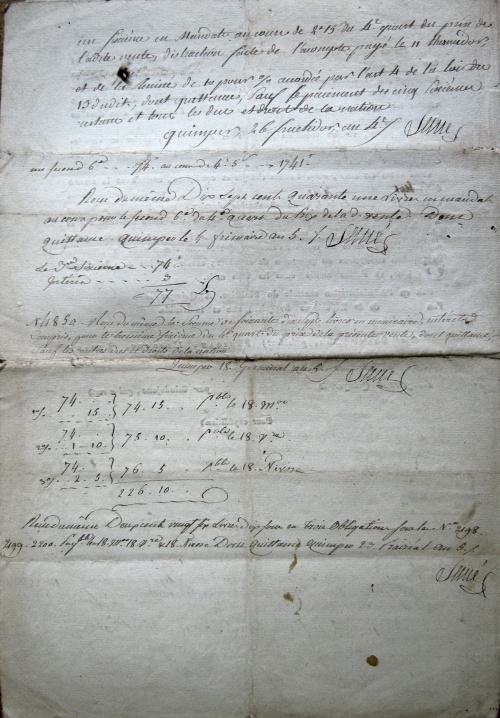 un sixième en Mandats au cours de du 4.e quart du prix de
l'adite vente, distraction faite de l'acompte payé le 11 thermidor,
et de la bonification de 10 pour % accordée par l'art 4 de la loi du
13 dudit, dont quittance, sauf le paiement des cinq sixièmes
restant et tous les dus et droits de la nation
quimper, 26 fructidor, an 4.e
Sané
un second 6.e 74.# au cours de 1741.#
Reçu du même Dix Sept cent quarante une Livres en mandat
au cours pour le second 6.e du 4.e quart du prix de la d. vente Dont
quittance. quimper le frimaire an 5. Sané
Le 3.e Sixième - - 74.
Intérêt - - - 3
77
N. 4850. Reçu du même la Somme de soixante dix sept livres en numéraire intérêts
compris, pour le troisième sixième du 4.e quart du prix de la présente vente, dont quittance,
sauf les autres dus et droits de la nation
Quimper 18. Germinal an 5. Sané
74. . . 15. 74. 15. le 18. M.re
74. 1. 10. 75. 10. le 18.
74. 2. 5. 76. 5. le 18. Nivose
226. 10.
Reçu du même Deux cent vingt six Livres dix sous en trois Obligations sous les N.os 2198.
2199. 2200. le 18 18 & 18. Nivose Dont Quittance Quimper 23. Prairial an 5.
Sané